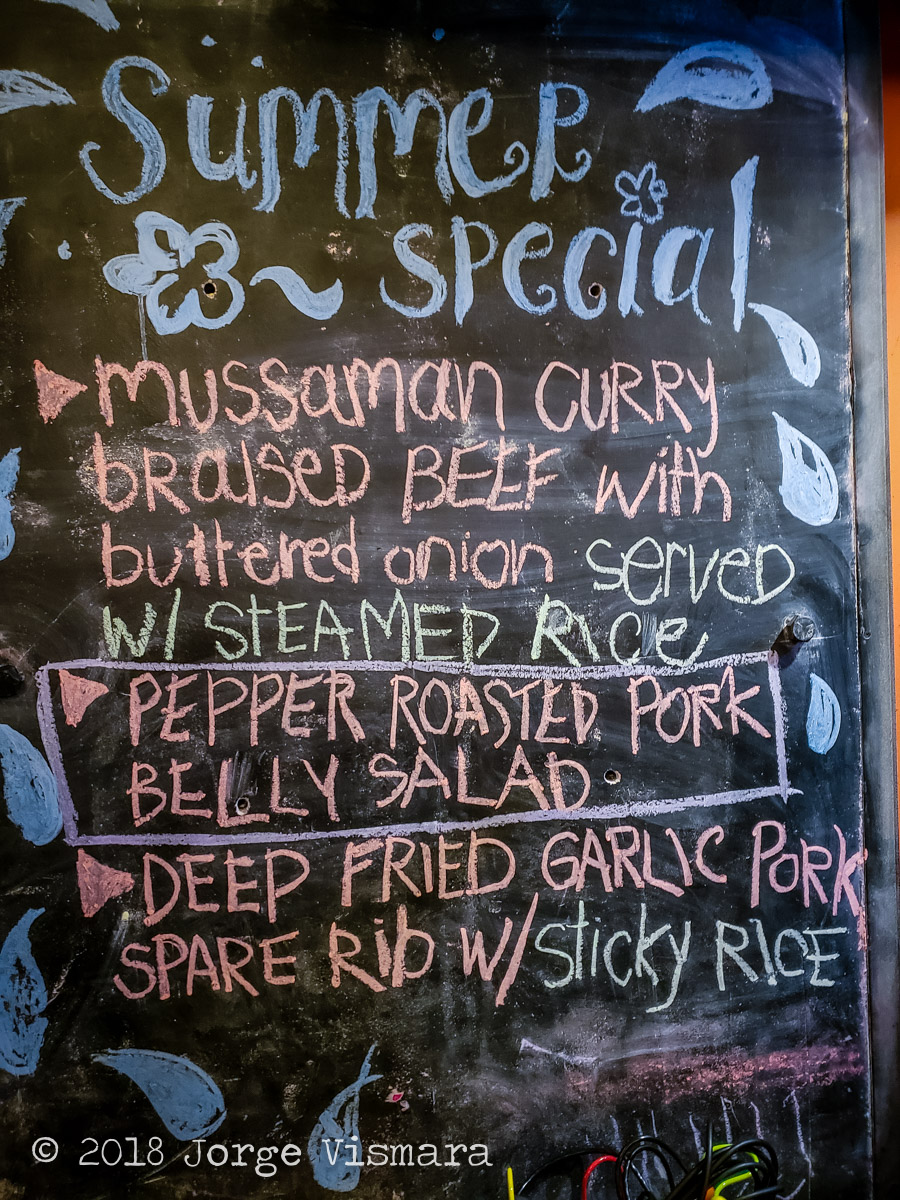 Summer
special
mussaman CURRY
bRaised BEEF with
buttered onion served
w/ STEAMED RIce
PEPPER ROASTED PORK
BELLY SALAD
DEEP FRIED GARLIC PORK
SPARE Rib W/ sticky RICE
© 2018 Jorge Vismara